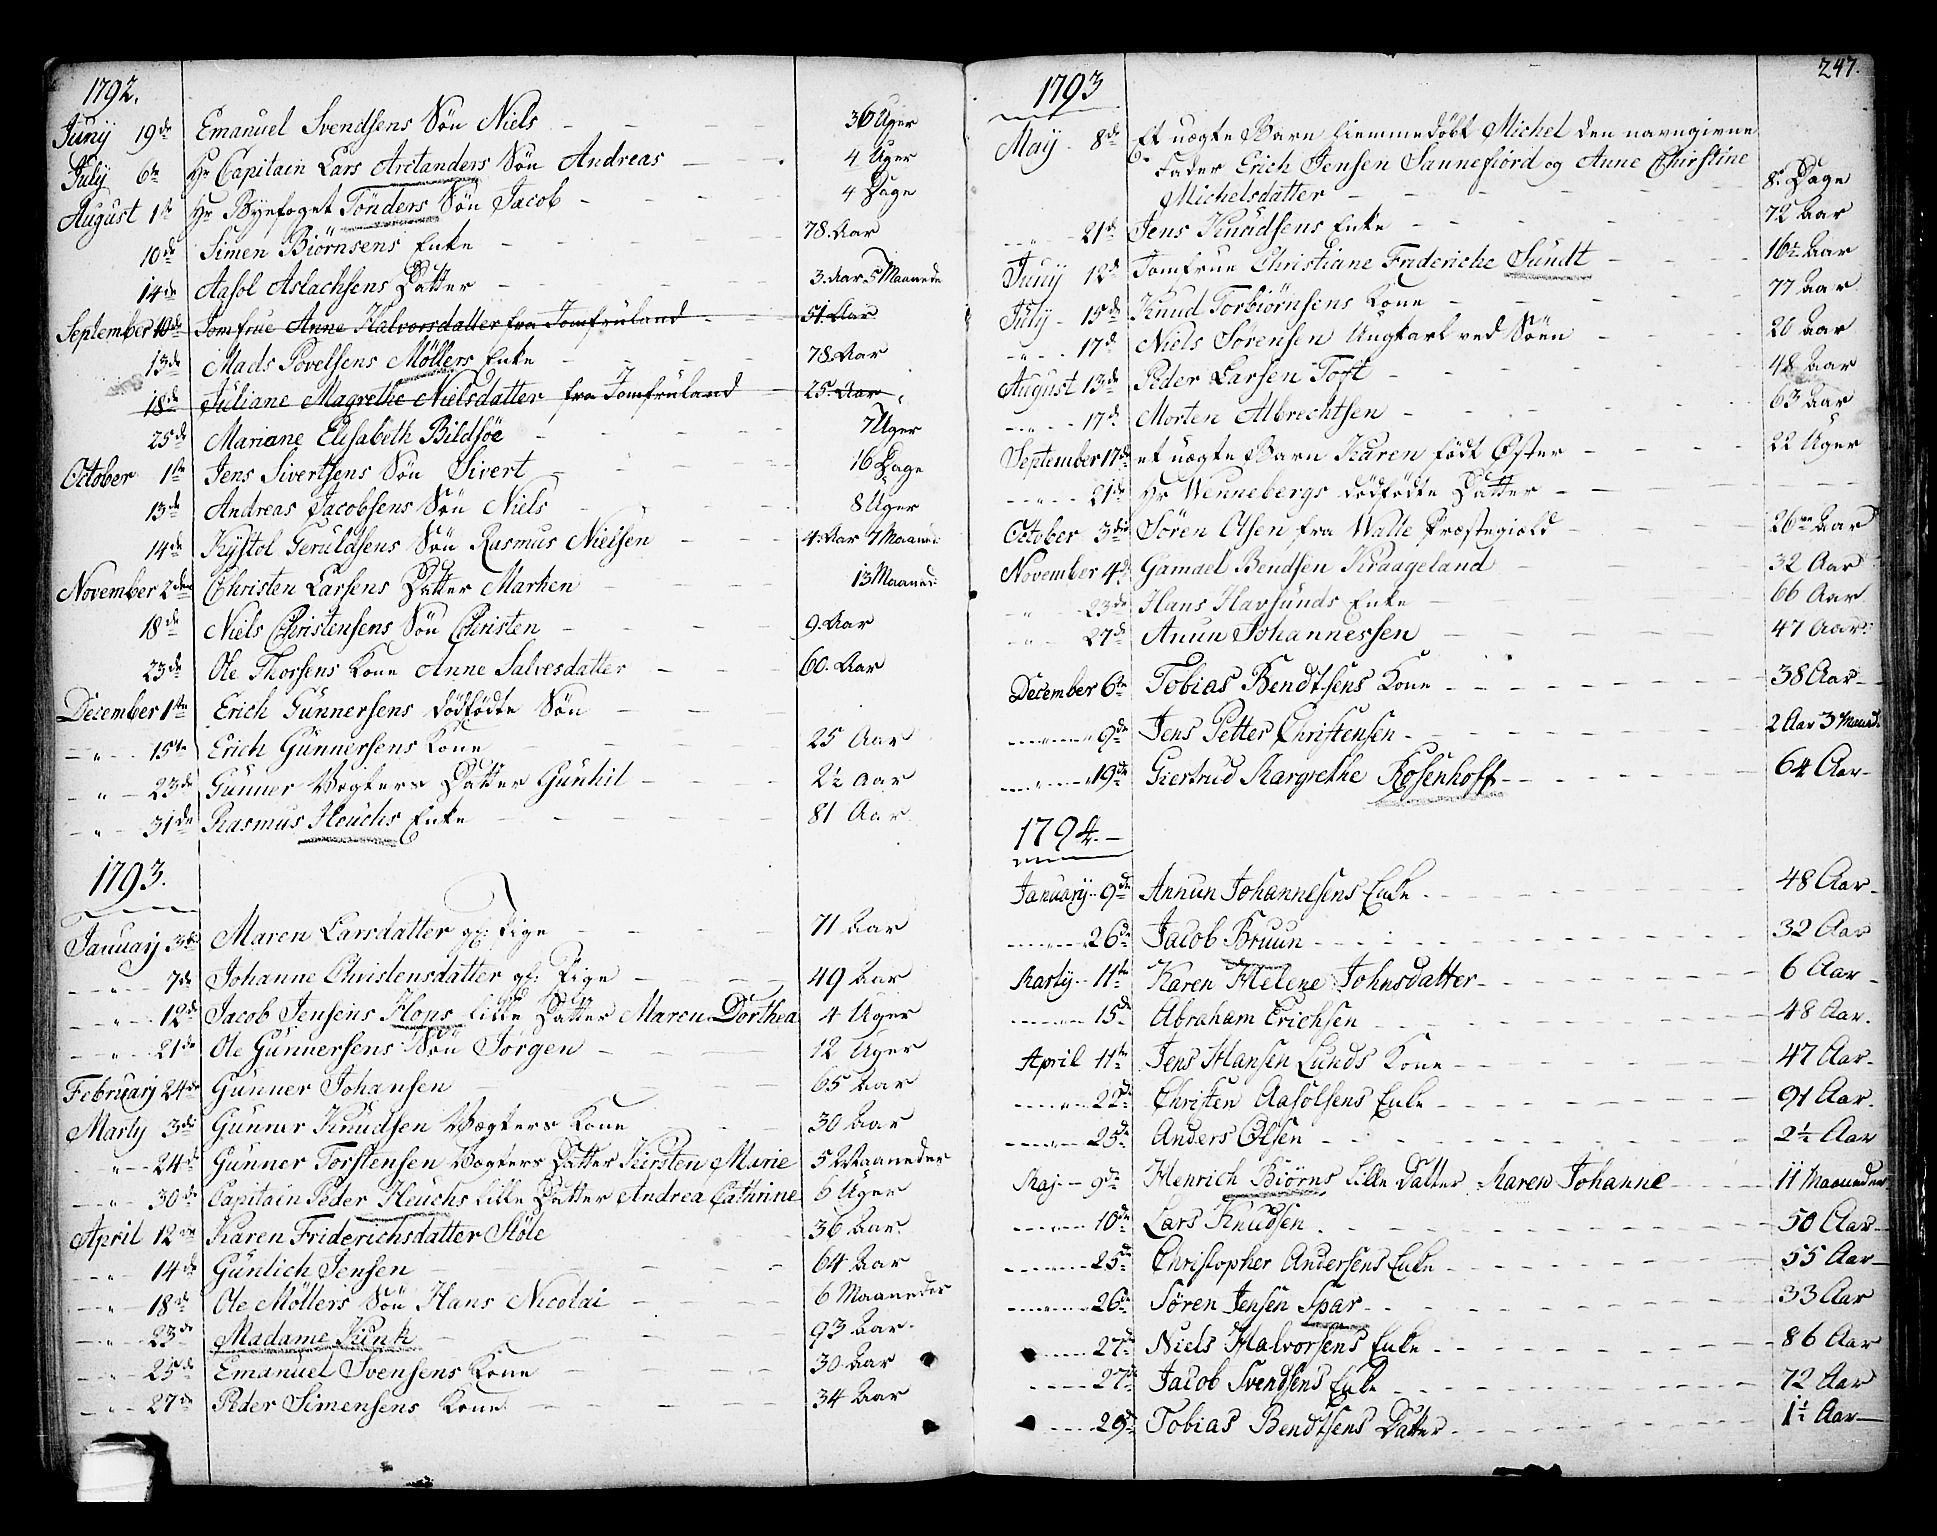 1792.
Junij 19de Emanuel Svendsens Søn Niels 36 Uger
July 6te Hr Capitain Lars Arctanders Søn Andreas 4 Uger
August 1te Hr Byefoget Tönders Søn Jacob 4 Dage
10de Simen Biörnsens Enke 78. Aar
14de Aasol Aslachsens Datter 3. Aar 5 Maaneder
September 10de Jomfrue Anne Halvorsdatter fra Jomfruland 51. Aar
13de Mads Povelsens Möllers Enke 78. Aar
18de Juliane Magrethe Nielsdatter fra Jomfruland 25. Aar
25de Mariane Elisabeth Bildsöe 7 Uger
October 1te Jens Sivertsens Søn Sivert 16 Dage
13de Andreas Jacobsens Søn Niels 8 Uger
14de Kystol Geruldsens Søn Rasmus Nielsen 4. Aar 7 Maaned:
November 2den Christen Larsens Datter Marken 13 Maaned:
18de Niels Christensens Søn Christen 9. Aar
23de Ole Thorsens Kone Anne Salvesdatter 60. Aar
December 1te Erich Gunnersens dödfödte Søn
15te Erich Gunnersens Kone 25 Aar
23de Gunner Vægters Datter Gunhil 2½ Aar
31de Rasmus Heuchs Enke 81 Aar
1793.
Januarij 3de Maren Larsdatter gl: Pige 71 Aar
7de Johanne Christensdatter gl: Pige 49 Aar
12de Jacob Jensens Hops lille Datter Maren Dorthea 4 Uger
21de Ole Gunnersens Søn Jörgen 12 Uger
Februarij 24de Gunner Johansen 65 Aar
Marty 3de Gunner Knudsen Vægters Kone 30 Aar
24de Gunner Torstensen Vægters Datter Kirsten Marie 5 Maaneder
30de Capitain Peder Heuchs lille Datter Andrea Cathrine 6 Uger
April 12te Karen Friderichsdatter Stöle 36 Aar
14de Günlich Jensen 64 Aar
18de Ole Möllers Søn Hans Nicolai 6 Maaneder
23de Madame Kunk 93 Aar
25de Emanuel Svensens Kone 30 Aar
27de Peder Simensens Kone 34 Aar
247.
1793
May 8de Et uægte Barn hiemmedöbt Michel den navngivne
Fader Erich Jensen Sannefiord og Anne Chirstine
Michelsdatter 8. Dage
21de Jens Knudsens Enke 72 Aar
Junij 12d Jomfrue Christiane Frideriche Sundt 16½ Aar
July 15de Knud Torbiörnsens Kone 77 Aar
17d Niels Sörensen Ungkarl ved Söen 20 Aar
August 13de Peder Larsen Toft 48 Aar
17d Morten Albrechtsen 63 Aar
September 17de et uægte Barn Karen födt Øster 22 Uger
21de Hr Wennebergs dödfödte Datter
October 3die Sören Olsen fra Walle Præstegiold 26 Aar
November 4de Gamael Bendsen Kraageland 32 Aar
23de Hans Havsunds Enke 66 Aar
27d Anun Johannessen 47 Aar
December 6te Tobias Bendtsens Kone 38 Aar
9de Jens Petter Christensen 2 Aar 3 Maaned.
19de Giertrud Margrethe Rosenhoff 64 Aar
1794.
Januarij 9de Annun Johannesens Enke 48 Aar
26de Jacob Bruun 32 Aar
Martij 11te Karen Helene Johnsdatter 6 Aar
15de Abraham Erichsen 48 Aar.
April 11te Jens Hansen Lunds Kone 47 Aar
22de Christen Aasolsens Enke 91 Aar.
25de Anders Olsen 2½ Aar
Maj 9de Henrich Biörns Lille Datter Maren Johanne 11 Maaneder
10de Lars Knudsen 50 Aar
25de Christopher Andersens Enke 55 Aar
26de Sören Jensen Spar 33 Aar
27de Niels Halvorsens Enke 86 Aar
27de Jacob Svendsens Enke 72 Aar
29de Tobias Bendtsens Datter 1½ Aar